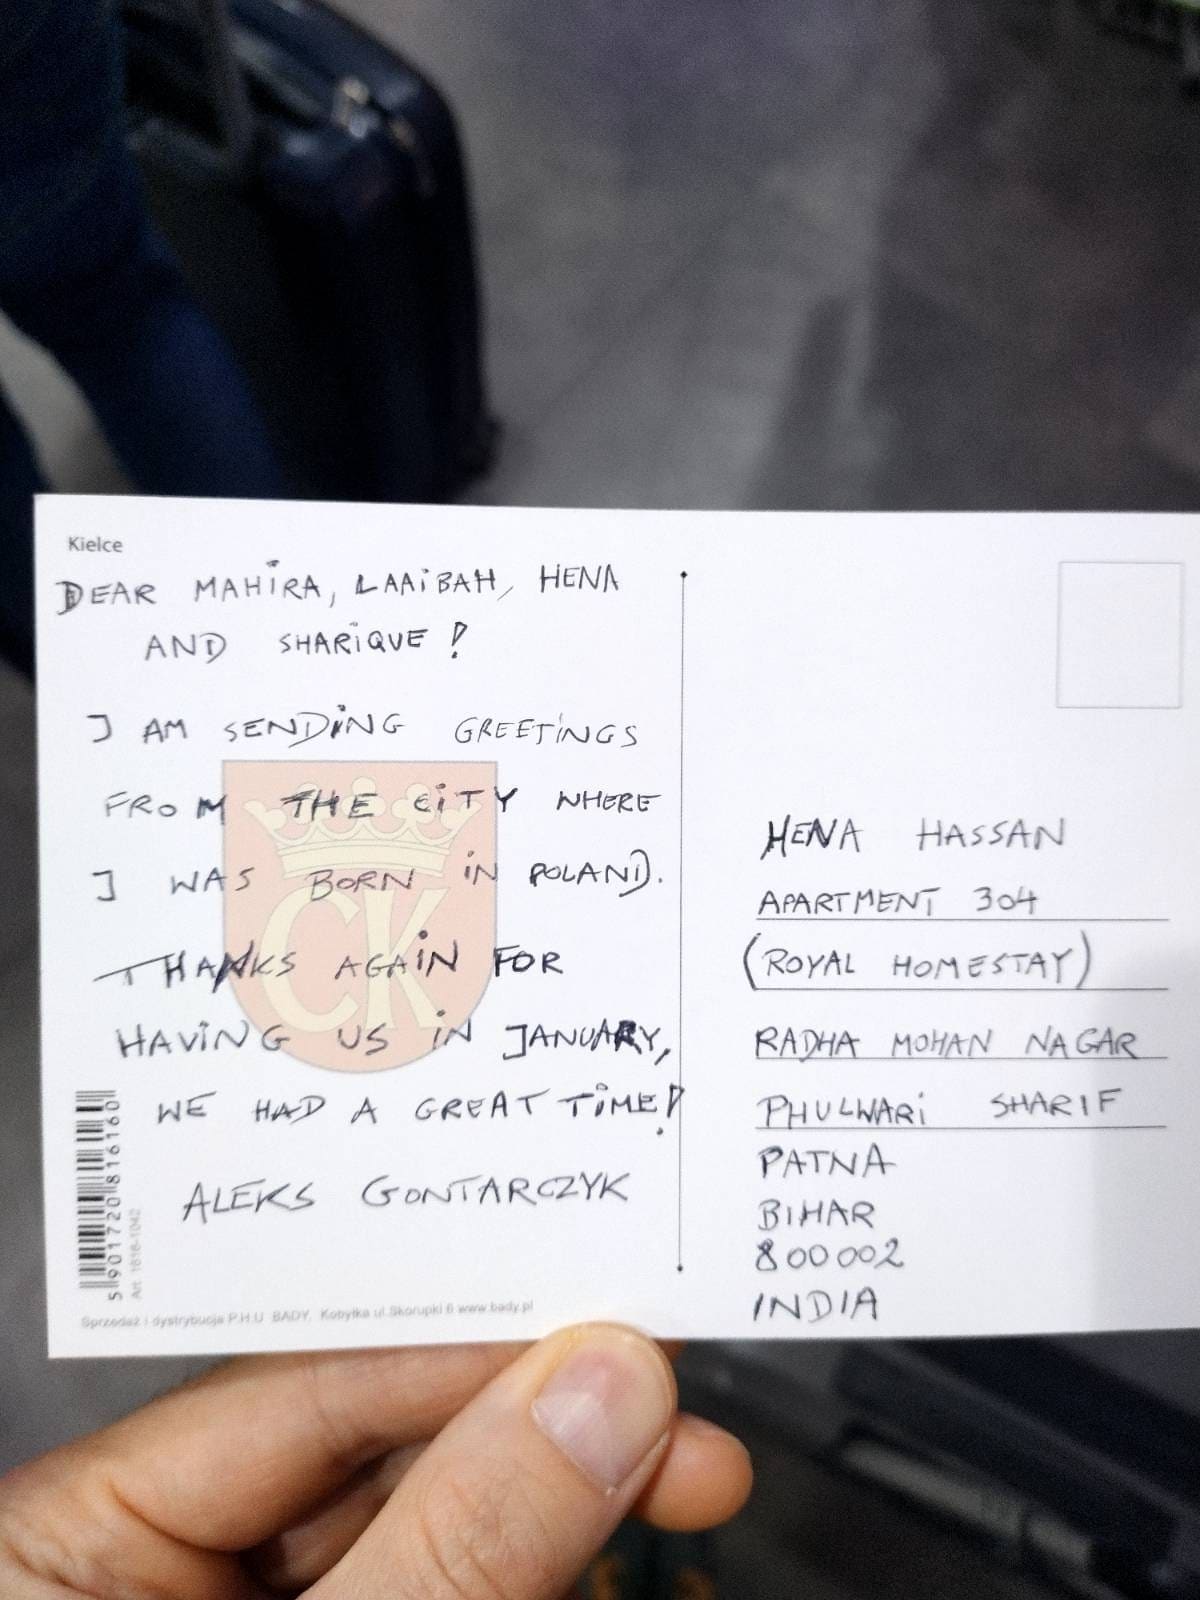 Kielce
DEAR MAHiRA, LAAiBAH, HENA
AND SHARiQUE!
I AM SENDiNG GREETiNGS
FROM THE CiTY WHERE
I WAS BORN iN POLAND.
THANKS AGAiN FOR
HAViNG US iN JANUARY,
WE HAD A GREAT TiME!
ALEKS GONTARCZYK
CK
5901720816160
Art. 1616-1042
Sprzedaż i dystrybucja P.H.U BADY, Kobyłka ul.Skorupki 6 www.bady.pl
HENA HASSAN
APARTMENT 304
(ROYAL HOMESTAY)
RADHA MOHAN NAGAR
PHULWARi SHARIF
PATNA
BIHAR
800002
INDIA